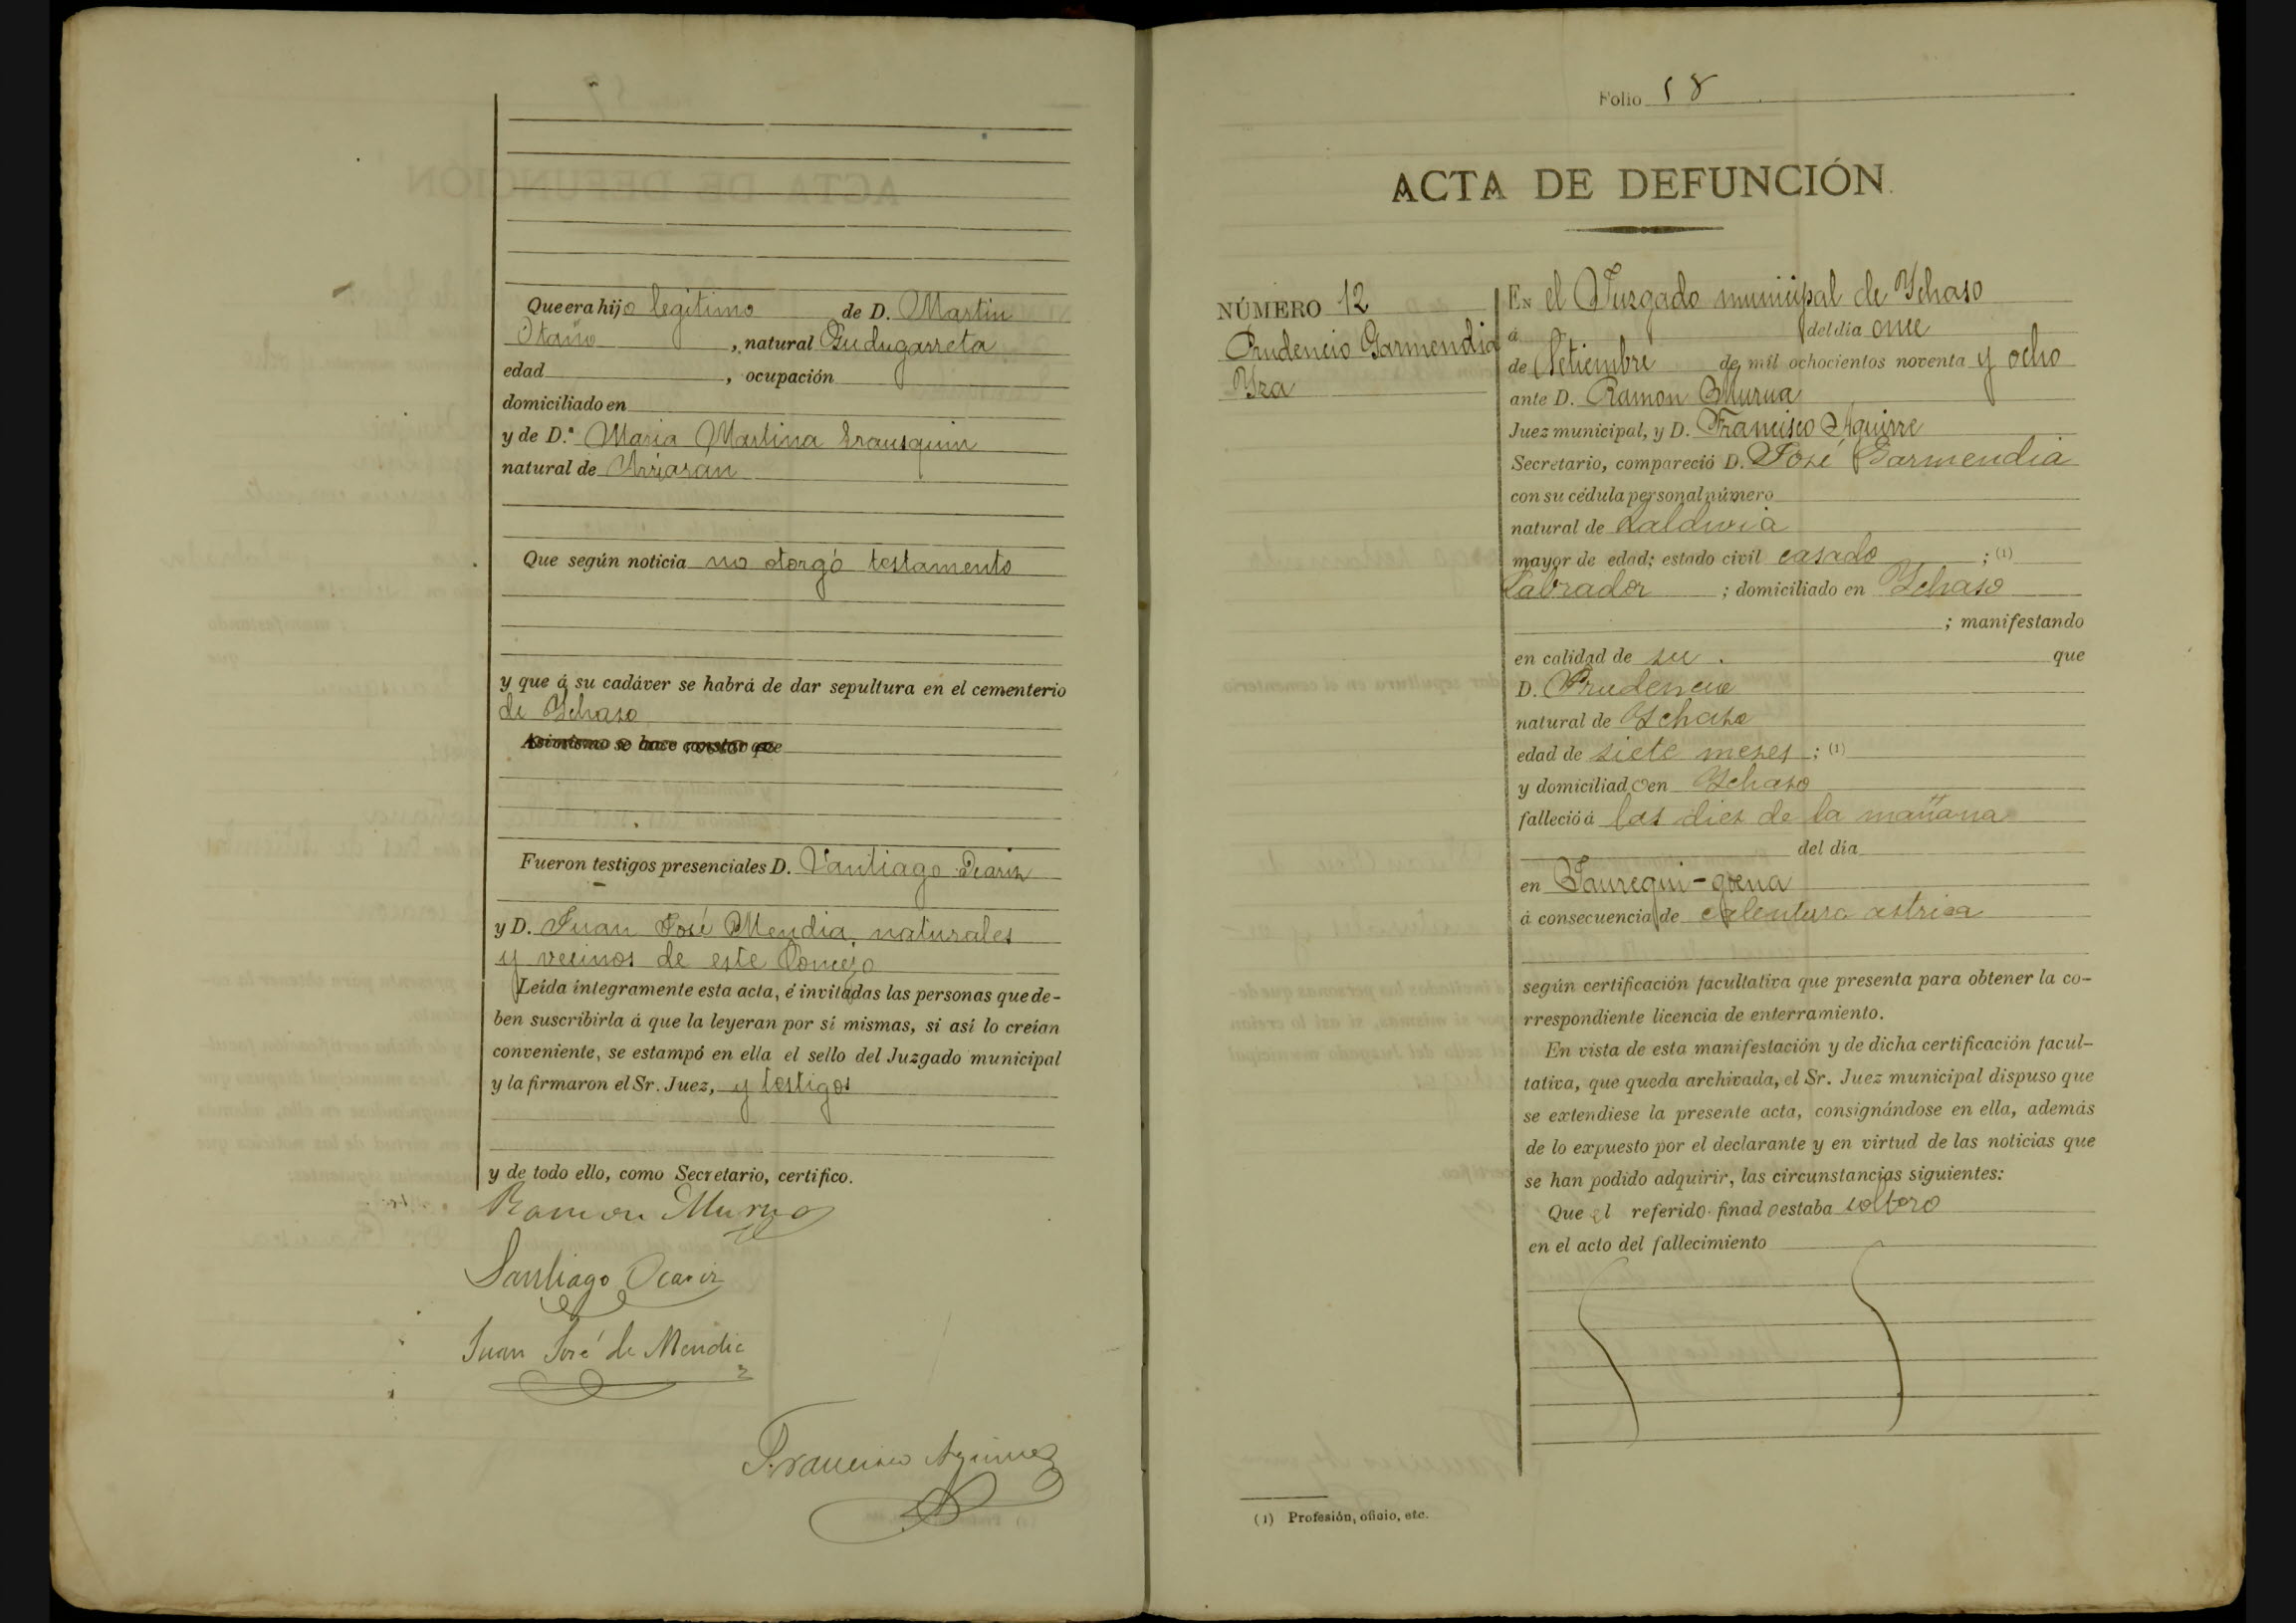 Que era hijo legitimo de D. Martin
Otaño, natural Gudugarreta
edad , ocupación
domiciliado en
y de D.ª Maria Martina Erausquin
natural de Arriarán
Que según noticia no otorgó testamento
y que á su cadáver se habrá de dar sepultura en el cementerio
de Ychaso
Asimismo se hace constar que
Fueron testigos presenciales D. Santiago Ocariz
y D. Juan José Mendia, naturales
y vecinos de este Concejo
Leída íntegramente esta acta, é invitadas las personas que de-
ben suscribirla á que la leyeran por sí mismas, si así lo creían
conveniente, se estampó en ella el sello del Juzgado municipal
y la firmaron el Sr. Juez, y testigos
y de todo ello, como Secretario, certifico.
Ramon Murua
Santiago Ocariz
Juan José de Mendia
Francisco Aguirre
Folio 58
ACTA DE DEFUNCIÓN.
NÚMERO 12
Prudencio Garmendia
Yza
En el Juzgado municipal de Ychaso
á del día once
de Setiembre de mil ochocientos noventa y ocho
ante D. Ramon Murua
Juez municipal, y D. Francisco Aguirre
Secretario, compareció D. José Garmendia
con su cédula personal número
natural de Zaldivia
mayor de edad; estado civil casado ; (1)
Labrador ; domiciliado en Ychaso
; manifestando
en calidad de su . que
D. Prudencio
natural de Ychaso
edad de siete meses ; (1)
y domiciliado en Ychaso
falleció á las diez de la mañana
del día
en Jauregui-goena
á consecuencia de calentura astrica
según certificación facultativa que presenta para obtener la co-
rrespondiente licencia de enterramiento.
En vista de esta manifestación y de dicha certificación facul-
tativa, que queda archivada, el Sr. Juez municipal dispuso que
se extendiese la presente acta, consignándose en ella, además
de lo expuesto por el declarante y en virtud de las noticias que
se han podido adquirir, las circunstancias siguientes:
Que el referido finado estaba soltero
en el acto del fallecimiento
(1) Profesión, oficio, etc.